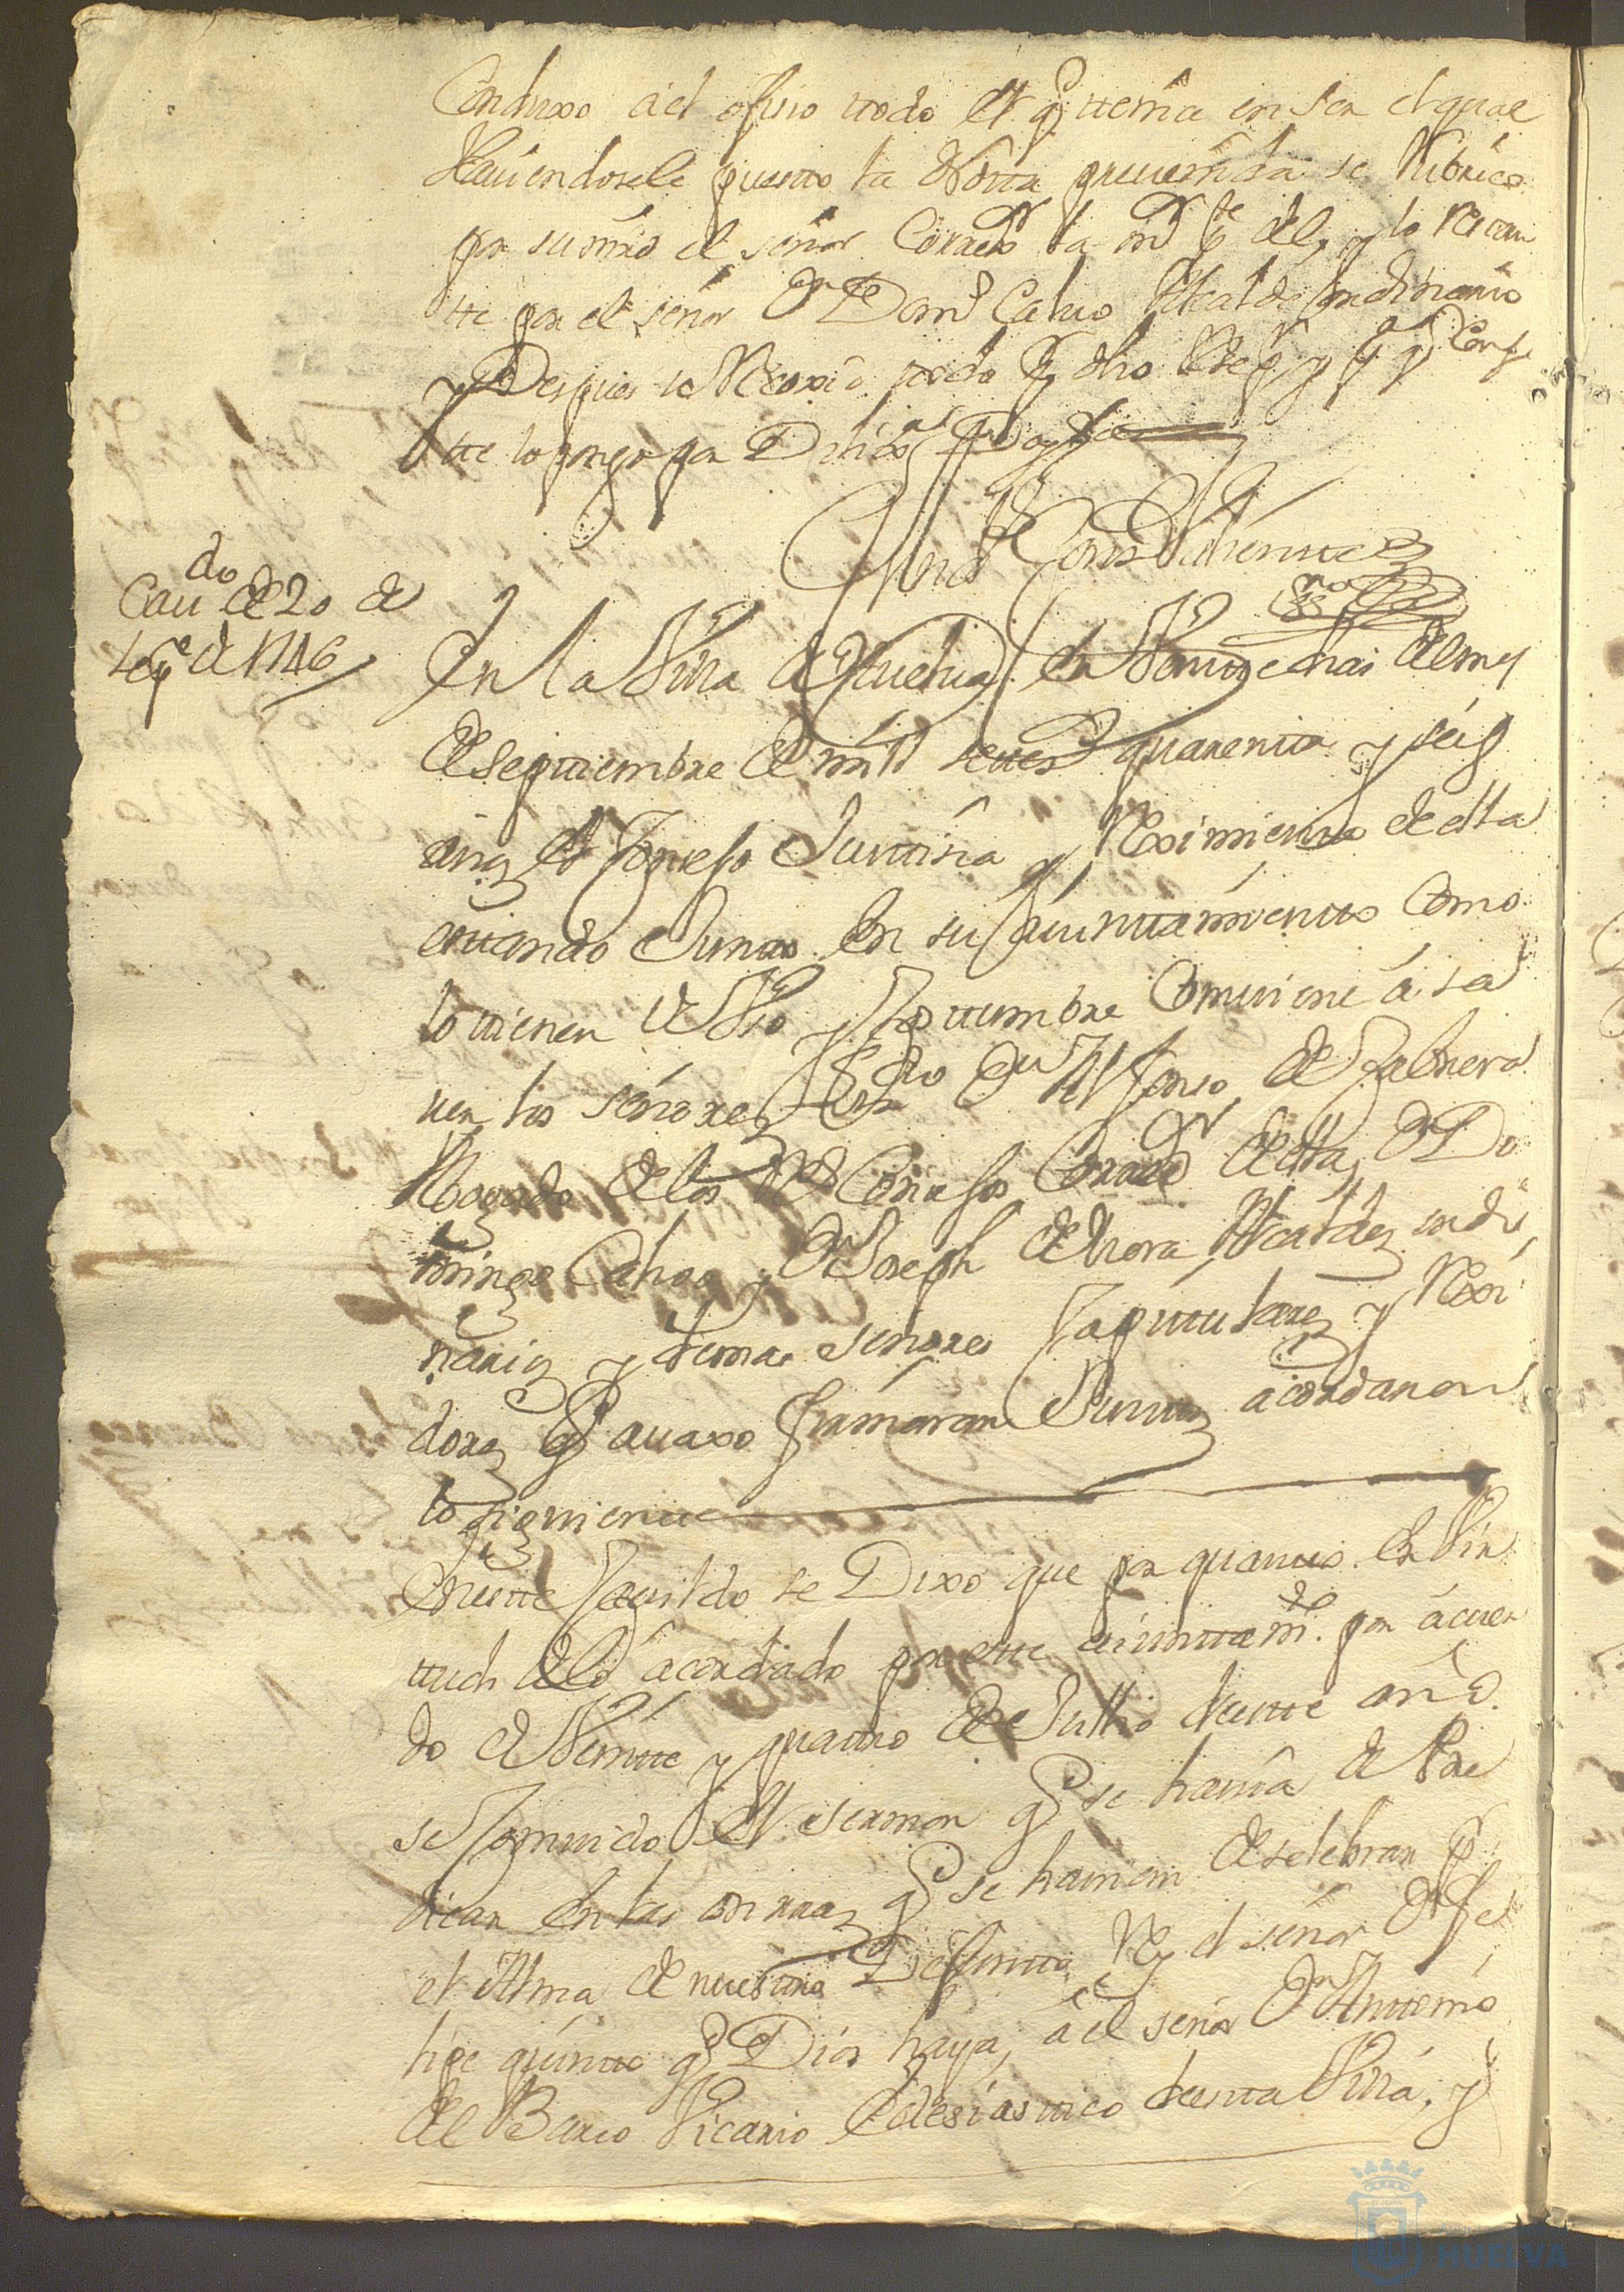 Conduxo a el ofisio ttodo el q.e ttenia en ser el qual
Hauiendosele puestto la Notta preuenida se Rubrico
por su mrd el señor Correxr la mr pte del, y lo Resttan
tte por el señor Dn Domo Calvo Alcalde hordinario
y Despues se Recoxio ttodo
tte lo pongo por Dilixa Doy fee
Cau.do de 20 de
Sep.e de 1746
En la Villa de Huelva en Veintte dias del mes
de Septtiembre de mill settesos quarentta y seis
años el Consejo Justtisia y Reximientto de esta
esttando Junttos en su Aiunttamientto como
lo ttienen de Vso y Costtumbre Combiene a sa
uer los señores Lizdo Dn Alfonso de
Abogado de los Rs Consejos Correxr de estta, Dn Do
mingo Calvo, y Dn Joseph de Mora Alcaldes ordi
narios y demas señores Capittulares y Rexi
dores q.e auaxo firmaran Junttos acordaron
lo siguientte
En estte Cauildo se Dixo que por quantto en Vir
ttud de lo acordado por estte aiunttam.to por acuer
do de Veintte y quattro de Jullio de estte año
se Combido el sermon q.e se hauia de Pre
dicar en las onrras q.e se hauian de selebrar pr
el Alma de nuestro Defuntto Rey el señor Dn Fe
lipe quintto q.e Dios haya, a el señor Dn Anttonio
del Barco Vicario Eclesiasttico de estta Villa, y
HUELVA